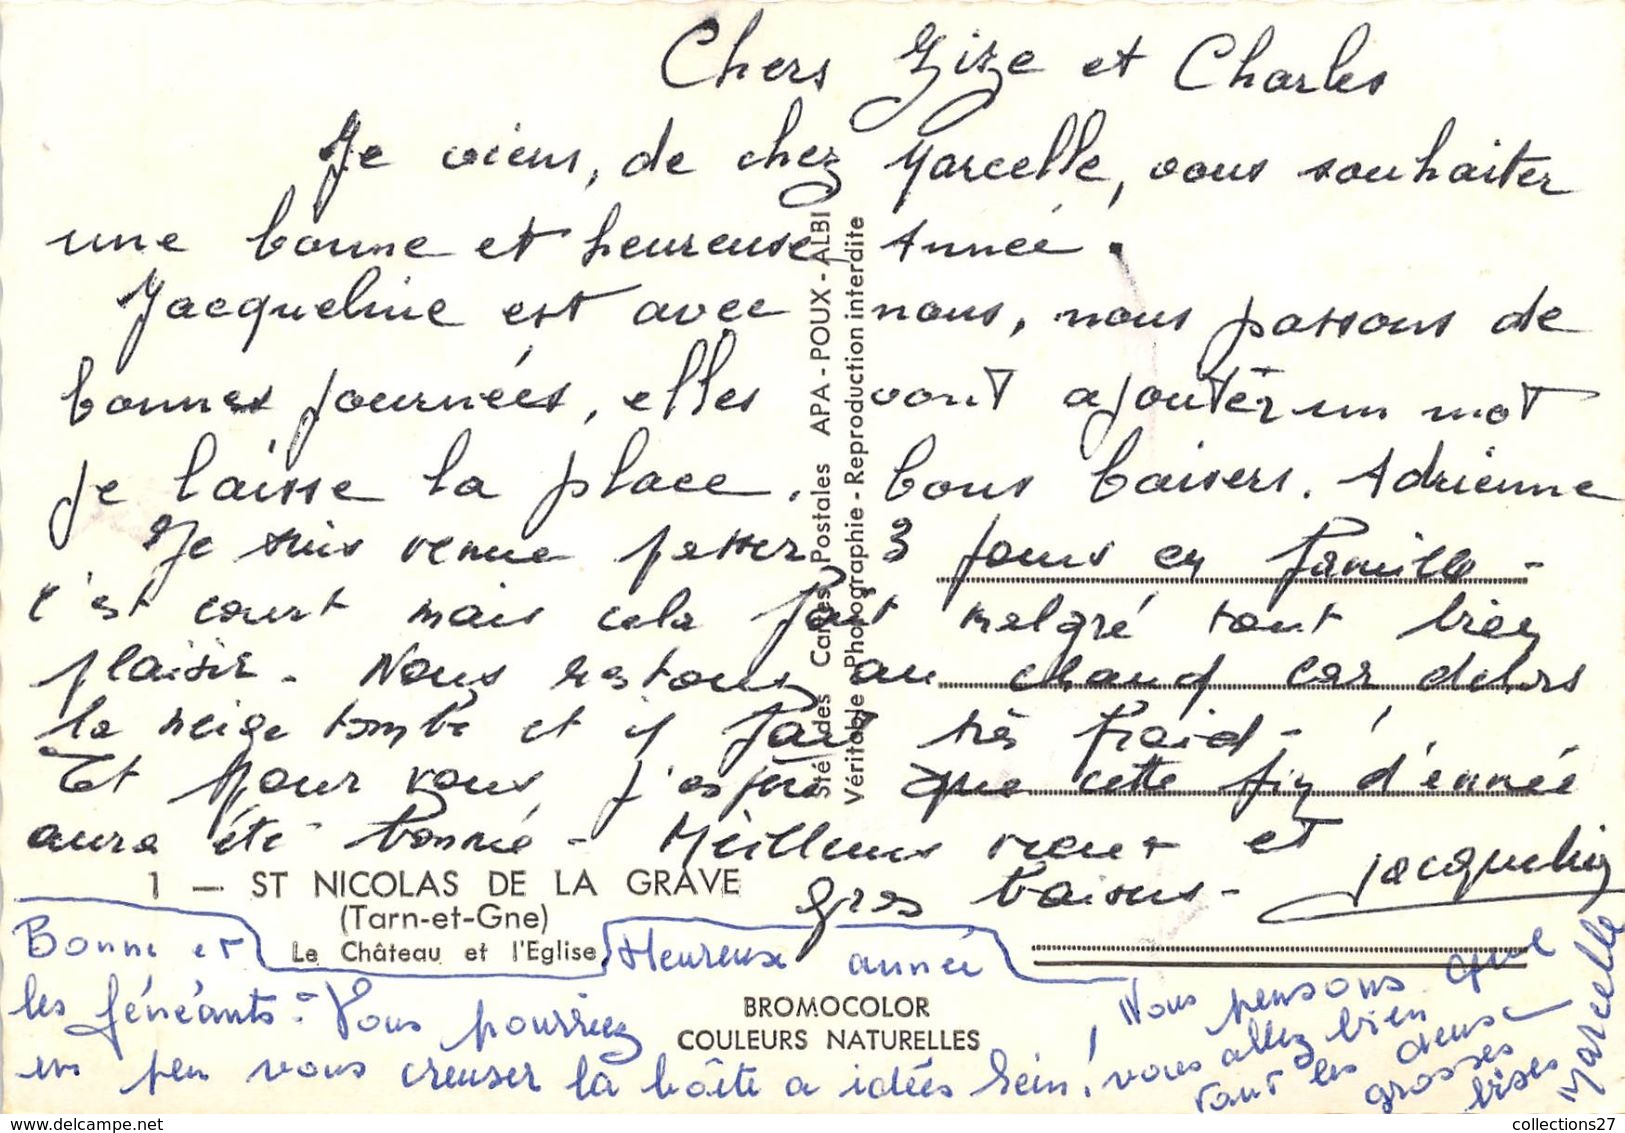 Chers Gize et Charles
Je viens, de chez Marcelle, vous souhaiter
une bonne et heureuse Année.
Jacqueline est avec nous, nous passons de
bonnes journées, elles vont ajouter un mot
je laisse la place. bons baisers. Adrienne
Je suis venue passer 3 jours en famille -
c'est court mais cela fait malgré tout bien
plaisir - Nous restons au chaud car dehors
la neige tombe et il fait très froid - !
Et pour vous j'espère que cette fin d'année
aura été bonne - Meilleurs vœux et
gros baisers - Jacqueline
1 — ST NICOLAS DE LA GRAVE
(Tarn-et-Gne)
Le Château et l'Eglise
BROMOCOLOR
COULEURS NATURELLES
Sté des Cartes Postales APA - POUX - ALBI
Véritable Photographie - Reproduction interdite
Bonne et Heureuse année
les fénéants - Vous pourriez
un peu vous creuser la boîte a idées hein!
Nous pensons que
vous allez bien
tout les deux
grosses
bises
Marcelle
collections27